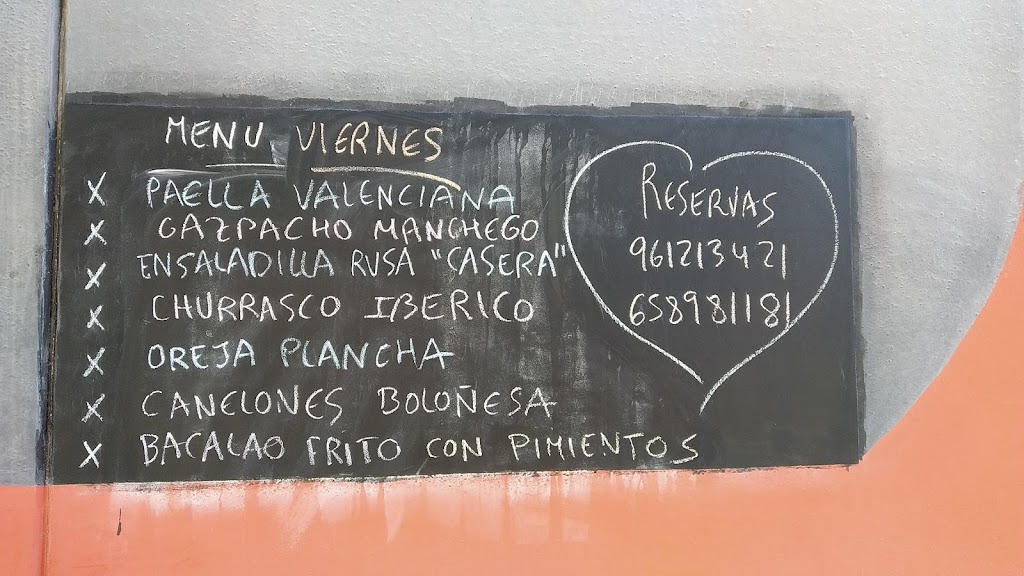 MENU VIERNES
X PAELLA VALENCIANA
X GAZPACHO MANCHEGO
X ENSALADILLA RUSA "CASERA"
X CHURRASCO IBERICO
X OREJA PLANCHA
X CANELONES BOLOÑESA
X BACALAO FRITO CON PIMIENTOS
RESERVAS
961213421
658981181